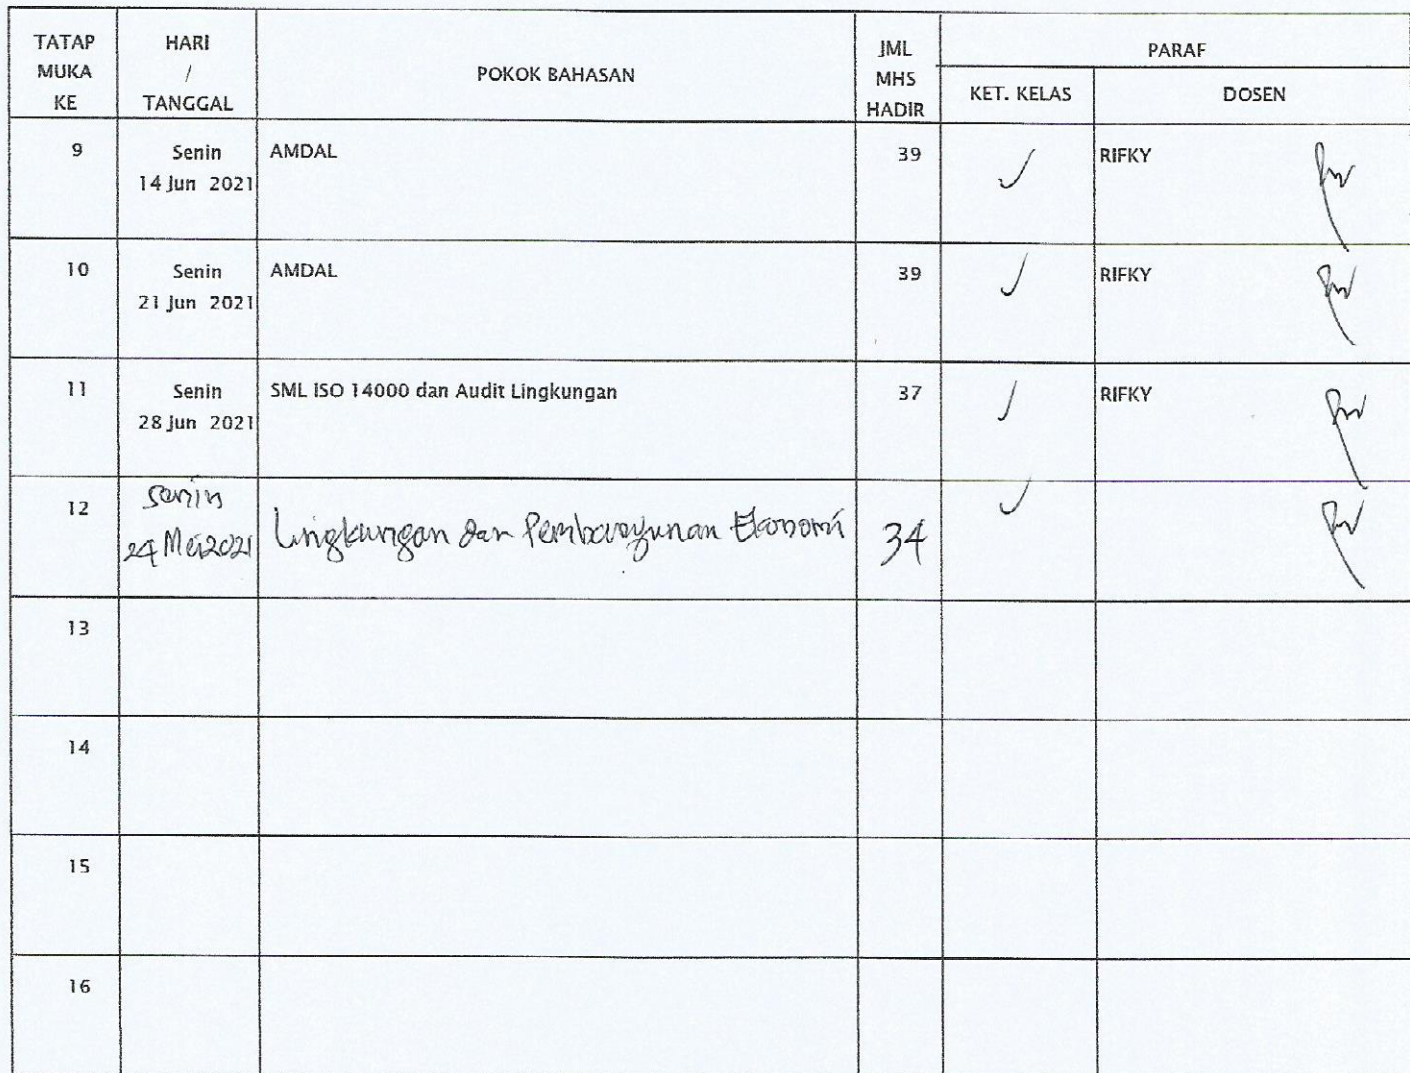 TATAP MUKA KE
HARI / TANGGAL
POKOK BAHASAN
JML MHS HADIR
PARAF
KET. KELAS
DOSEN
9
Senin
14 Jun 2021
AMDAL
39
RIFKY
10
Senin
21 Jun 2021
AMDAL
39
RIFKY
11
Senin
28 Jun 2021
SML ISO 14000 dan Audit Lingkungan
37
RIFKY
12
Senin
24 Mei 2021
Lingkungan dan Pembangunan Ekonomi
34
13
14
15
16